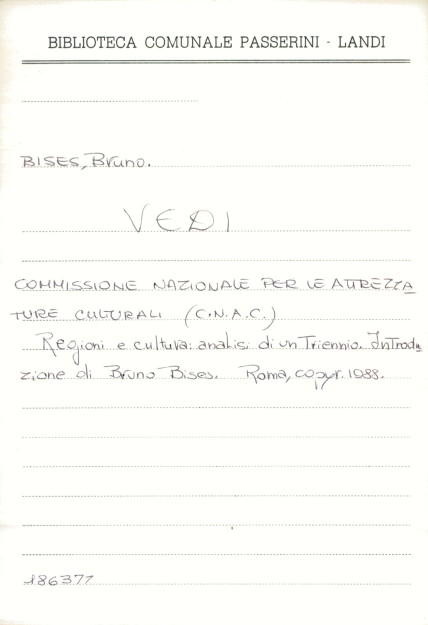 BIBLIOTECA COMUNALE PASSERINI - LANDI
BISES, Bruno.
VEDI
COMMISSIONE NAZIONALE PER LE ATTREZZA
TURE CULTURALI (C.N.A.C.)
Regioni e cultura: analisi di un Triennio. Introdu
zione di Bruno Bises. Roma, copyr. 1988.
186377